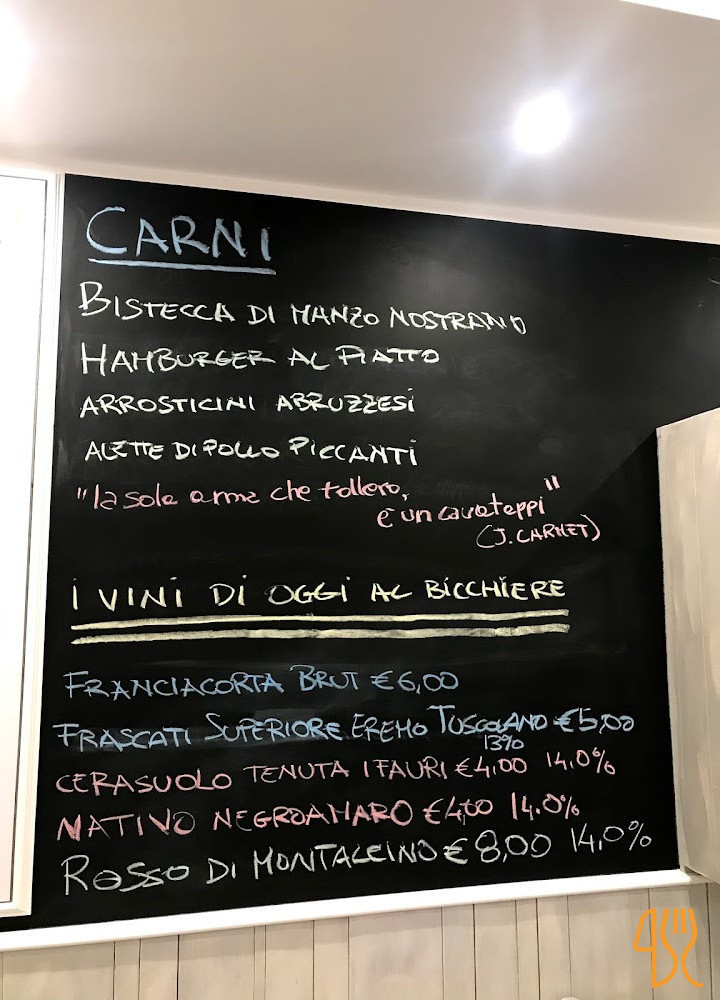 CARNI
BISTECCA DI MANZO NOSTRANO
HAMBURGER AL PIATTO
ARROSTICINI ABRUZZESI
ALETTE DI POLLO PICCANTI
"la sola arma che tollero,
è un cavatappi"
(J. CARMET)
I VINI DI OGGI AL BICCHIERE
FRANCIACORTA BRUT €6,00
FRASCATI SUPERIORE EREMO TUSCOLANO €5,00
13%
CERASUOLO TENUTA I FAURI €4,00 14,0%
NATIVO NEGROAMARO €4,00 14.0%
ROSSO DI MONTALCINO €8,00 14,0%